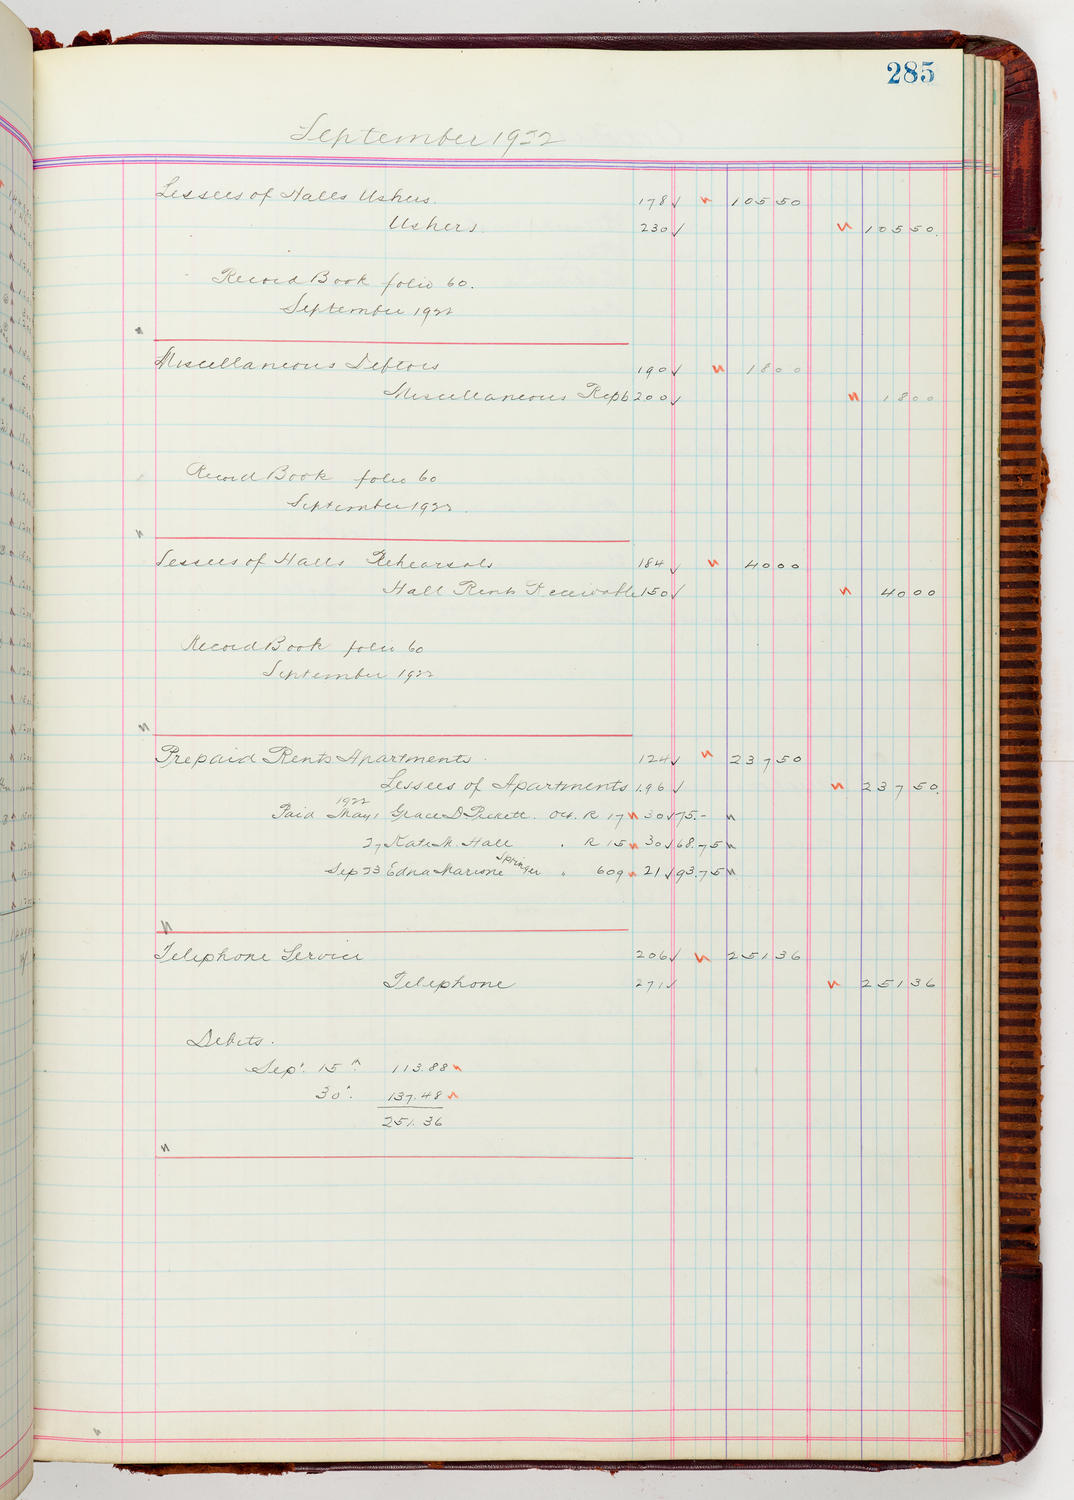 285
September 1922
Lessees of Halls Ushers. 178 ✓ 105 50
Ushers. 230 ✓ 105 50.
Record Book folio 60.
September 1922
Miscellaneous Debtors 190 ✓ 18 00
Miscellaneous Repts 200 ✓ 18 00
Record Book folio 60
September 1922.
Lessees of Halls Rehearsals 184 ✓ 40 00
Hall Rents Receivable 150 ✓ 40 00
Record Book folio 60
September 1922
Prepaid Rents Apartments. 124 ✓ 237 50
Lessees of Apartments 196 ✓ 237 50.
1922
Paid May 1 Grace D Pickett. Oct. R 17 30 ✓ 75.-
27 Kate M. Hall " R 15 30 ✓ 68.75
Springer
Sep 23 Edna Marione " 609 21 ✓ 93.75
Telephone Service 206 ✓ 251 36
Telephone 271 ✓ 251 36
Debits.
Sep. 15 113.88
30 137.48
251.36